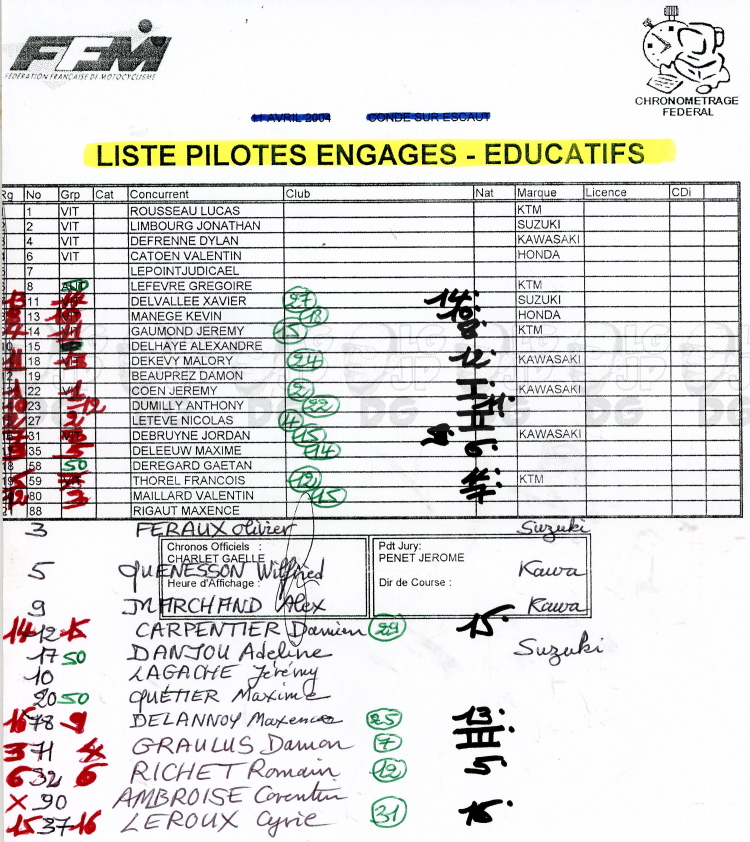 FFM
FEDERATION FRANCAISE DE MOTOCYCLISME
CHRONOMETRAGE
FEDERAL
11 AVRIL 2004 CONDE SUR ESCAUT
LISTE PILOTES ENGAGES - EDUCATIFS
Rg No Grp Cat Concurrent Club Nat Marque Licence CDi
1 VIT ROUSSEAU LUCAS KTM
2 VIT LIMBOURG JONATHAN SUZUKI
4 VIT DEFRENNE DYLAN KAWASAKI
6 VIT CATOEN VALENTIN HONDA
7 LEPOINTJUDICAEL
8 50 LEFEVRE GREGOIRE KTM
11 DELVALLEE XAVIER 27 14. SUZUKI
13 10 MANEGE KEVIN 18 10. HONDA
14 11 GAUMOND JEREMY 15 8. KTM
15 DELHAYE ALEXANDRE
18 13 DEKEVY MALORY 24 12. KAWASAKI
19 BEAUPREZ DAMON
22 1 COEN JEREMY 2 I KAWASAKI
23 12 DUMILLY ANTHONY 22 11.
27 2 LETEVE NICOLAS 4 II
31 DEBRUYNE JORDAN 15 KAWASAKI
35 5 DELEEUW MAXIME 14 6.
58 50 DEREGARD GAETAN
59 THOREL FRANCOIS 12 KTM
12 80 3 MAILLARD VALENTIN 15 7
88 RIGAUT MAXENCE
3 FERAUX Olivier Suzuki
Chronos Officiels : Pdt Jury:
CHARLET GAELLE PENET JEROME
5 QUENESSON Wilfried Kawa
Heure d'Affichage : Dir de Course :
9 MARCHAND Alex Kawa
14 12 15 CARPENTIER Damien 29 15.
17 50 DANJOU Adeline Suzuki
10 LAGACHE Jérémy
20 50 QUÉTIER Maxime
78 9 DELANNOY Maxence 25 13.
3 71 4 GRAULUS Damon 7 III
6 32 6 RICHET Romain 12 5.
X 90 AMBROISE Corentin
15 37 16 LEROUX Cyric 31 16.